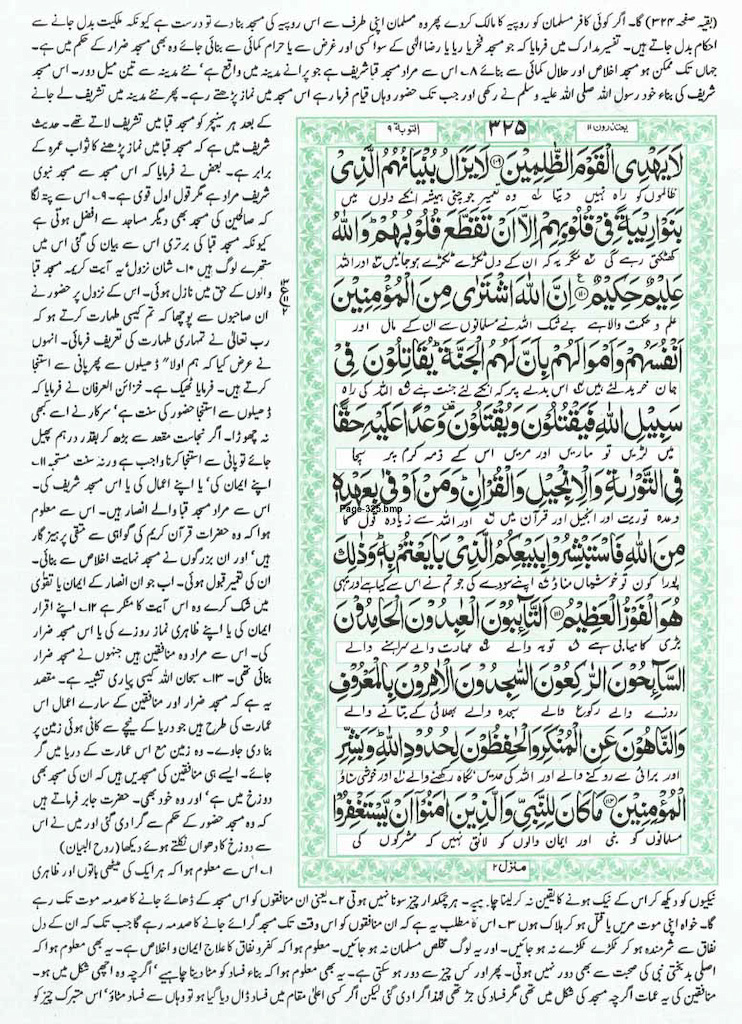 (بقیہ صفحہ ۳۲۴) گا۔ اگر کوئی کافر مسلمان کو روپیہ کا مالک کردے پھر وہ مسلمان اپنی طرف سے اس روپیہ کی مسجد بنا دے تو درست ہے کیونکہ ملکیت بدل جانے سے
احکام بدل جاتے ہیں۔ تفسیر مدارک میں فرمایا کہ جو مسجد فخریا ریا یا رضا الٰہی کے سوا کسی اور غرض سے یا حرام کمائی سے بنائی جائے وہ بھی مسجد ضرار کے حکم میں ہے۔
جہاں تک ممکن ہو مسجد اخلاص اور حلال کمائی سے بنائے ۸۔ اس سے مراد مسجد قبا شریف ہے جو پرانے مدینہ میں واقع ہے' نئے مدینہ سے تین میل دور۔ اس مسجد
شریف کی بناء خود رسول اللہ صلی اللہ علیہ وسلم نے رکھی اور جب تک حضور وہاں قیام فرما رہے اس مسجد میں نماز پڑھتے رہے۔ پھر نئے مدینہ میں تشریف لے جانے
کے بعد ہر سنیچر کو مسجد قبا میں تشریف لاتے تھے۔ حدیث
شریف میں ہے کہ مسجد قبا میں نماز پڑھنے کا ثواب عمرہ کے
برابر ہے۔ بعض نے فرمایا کہ اس سے مسجد نبوی
شریف مراد ہے مگر قول اول قوی ہے۔ ۹۔ اس سے پتہ لگا
کہ صالحین کی مسجد بھی دیگر مساجد سے افضل ہوتی ہے
کیونکہ مسجد قبا کی برتری اس سے بیان کی گئی اس میں
ستھرے لوگ ہیں ۱۰۔ شان نزول' یہ آیت کریمہ مسجد قبا
والوں کے حق میں نازل ہوئی۔ اس کے نزول پر حضور نے
ان صاحبوں سے پوچھا کہ تم کیسی طہارت کرتے ہو کہ
رب تعالیٰ نے تمہاری طہارت کی تعریف فرمائی۔ انہوں
نے عرض کیا کہ ہم اولا" ڈھیلوں سے پھر پانی سے استنجا
کرتے ہیں۔ فرمایا ٹھیک ہے۔ خزائن العرفان نے فرمایا کہ
ڈھیلوں سے استنجا حضور کی سنت ہے' سرکار نے اسے کبھی
نہ چھوڑا۔ اگر نجاست مقعد سے بڑھ کر بقدر درہم پھیل
جائے تو پانی سے استنجا کرنا واجب ہے ورنہ سنت مستحبہ ۱۱۔
اپنے ایمان کی' یا اپنے اعمال کی یا اس مسجد شریف کی۔
اس سے مراد مسجد قبا والے انصار ہیں۔ اس سے معلوم
ہوا کہ وہ حضرات قرآن کریم کی گواہی سے متقی پرہیزگار
ہیں' اور ان بزرگوں نے مسجد نہایت اخلاص سے بنائی۔
ان کی تعمیر قبول ہوئی۔ اب جو ان انصار کے ایمان یا تقویٰ
میں شک کرے وہ اس آیت کا منکر ہے ۱۲۔ اپنے اقرار
ایمان کی یا اپنے ظاہری نماز روزے کی یا اس مسجد ضرار
کی۔ اس سے مراد وہ منافقین ہیں جنہوں نے مسجد ضرار
بنائی تھی۔ ۱۳۔ سبحان اللہ کیسی پیاری تشبیہ ہے۔ مقصد
یہ ہے کہ مسجد ضرار اور منافقین کے سارے اعمال اس
عمارت کی طرح ہیں جو دریا کے نیچے سے کاٹی ہوئی زمین پر
بنا دی جاوے۔ وہ زمین مع اس عمارت کے دریا میں گر
جائے۔ ایسے ہی منافقین کی مسجدیں ہیں کہ ان کی مسجد بھی
دوزخ میں ہے' اور وہ خود بھی۔ حضرت جابر فرماتے ہیں
کہ وہ مسجد حضور کے حکم سے گرا دی گئی اور میں نے اس
سے دوزخ کا دھواں نکلتے ہوئے دیکھا (روح البیان)
۱۔ اس سے معلوم ہوا کہ ہر ایک کی میٹھی باتوں اور ظاہری
یعتذرون ۱۱
۳۲۵
التوبة ۹
لَا یَهْدِی الْقَوْمَ الظّٰلِمِیْنَ ﴿۱۰۹﴾ لَا یَزَالُ بُنْیَانُهُمُ الَّذِیْ
ظالموں کو راہ نہیں دیتا وہ تعمیر جو چنی ہمیشہ انکے دلوں میں
بَنَوْا رِیْبَةً فِیْ قُلُوْبِهِمْ اِلَّاۤ اَنْ تَقَطَّعَ قُلُوْبُهُمْ ؕ وَاللّٰهُ
کھٹکتی رہے گی مگر یہ کہ ان کے دل ٹکڑے ٹکڑے ہو جائیں اور اللہ
عَلِیْمٌ حَكِیْمٌ ﴿۱۱۰﴾ اِنَّ اللّٰهَ اشْتَرٰی مِنَ الْمُؤْمِنِیْنَ
علم و حکمت والا ہے بے شک اللہ نے مسلمانوں سے ان کے مال اور
اَنْفُسَهُمْ وَاَمْوَالَهُمْ بِاَنَّ لَهُمُ الْجَنَّةَ ؕ یُقَاتِلُوْنَ فِیْ
جان خرید لئے ہیں اس بدلے پر کہ انکے لئے جنت ہے اللہ کی راہ
سَبِیْلِ اللّٰهِ فَیَقْتُلُوْنَ وَیُقْتَلُوْنَ ۫ وَعْدًا عَلَیْهِ حَقًّا
میں لڑیں تو ماریں اور مریں اس کے ذمہ کرم پر سچا
فِی التَّوْرٰىةِ وَالْاِنْجِیْلِ وَالْقُرْاٰنِ ؕ وَمَنْ اَوْفٰی بِعَهْدِهٖ
Page-325.bmp
وعدہ توریت اور انجیل اور قرآن میں اور اللہ سے زیادہ قول کا
مِنَ اللّٰهِ فَاسْتَبْشِرُوْا بِبَیْعِكُمُ الَّذِیْ بَایَعْتُمْ بِهٖ ؕ وَذٰلِكَ
پورا کون تو خوشیاں مناؤ اپنے سودے کی جو تم نے اس سے کیا ہے اور یہی
هُوَ الْفَوْزُ الْعَظِیْمُ ﴿۱۱۱﴾ اَلتَّآىِٕبُوْنَ الْعٰبِدُوْنَ الْحٰمِدُوْنَ
بڑی کامیابی ہے توبہ والے عبادت والے سراہنے والے
السَّآىِٕحُوْنَ الرّٰكِعُوْنَ السّٰجِدُوْنَ الْاٰمِرُوْنَ بِالْمَعْرُوْفِ
روزے والے رکوع والے سجدہ والے بھلائی کے بتانے والے
وَالنَّاهُوْنَ عَنِ الْمُنْكَرِ وَالْحٰفِظُوْنَ لِحُدُوْدِ اللّٰهِ ؕ وَبَشِّرِ
اور برائی سے روکنے والے اور اللہ کی حدیں نگاہ رکھنے والے اور خوشی سناؤ
الْمُؤْمِنِیْنَ ﴿۱۱۲﴾ مَا كَانَ لِلنَّبِیِّ وَالَّذِیْنَ اٰمَنُوْۤا اَنْ یَّسْتَغْفِرُوْا
مسلمانوں کو نبی اور ایمان والوں کو لائق نہیں کہ مشرکوں کی
منزل ۲
نیکیوں کو دیکھ کر اس کے نیک ہونے کا یقین نہ کر لینا چاہیے۔ ہر چمکدار چیز سونا نہیں ہوتی ۲۔ یعنی ان منافقوں کو اس مسجد کے ڈھائے جانے کا صدمہ موت تک رہے
گا۔ خواہ اپنی موت مریں یا قتل ہو کر ہلاک ہوں ۳۔ اس کا مطلب یہ ہے کہ ان منافقوں کو اس وقت تک مسجد گرائے جانے کا صدمہ رہے گا جب تک کہ ان کے دل
نفاق سے شرمندہ ہو کر ٹکڑے ٹکڑے نہ ہو جائیں۔ اور یہ لوگ مخلص مسلمان نہ ہو جائیں۔ معلوم ہوا کہ کفر و نفاق کا علاج ایمان و اخلاص ہے۔ یہ بھی معلوم ہوا کہ
اصلی بدبختی نبی کی صحبت سے بھی دور نہیں ہوتی۔ پھر اور کس چیز سے دور ہو سکتی ہے۔ یہ بھی معلوم ہوا کہ بناء فساد کو مٹا دینا چاہیے' اگرچہ وہ اچھی شکل میں ہو۔
منافقین کی یہ عمارت اگرچہ مسجد کی شکل میں تھی مگر فساد کی جڑ تھی لہٰذا گرا دی گئی لیکن اگر کسی اعلیٰ مقام میں فساد ڈال دیا گیا ہو تو وہاں سے فساد مٹاؤ' اس متبرک چیز کو